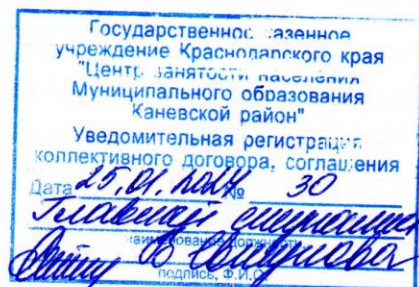 Государственное казенное
учреждение Краснодарского края
"Центр занятости населения
Муниципального образования
Каневской район"
Уведомительная регистрация
коллективного договора, соглашения
Дата 25.01. № 30
Главный специалист
наименование должности
подпись, Ф.И.О.